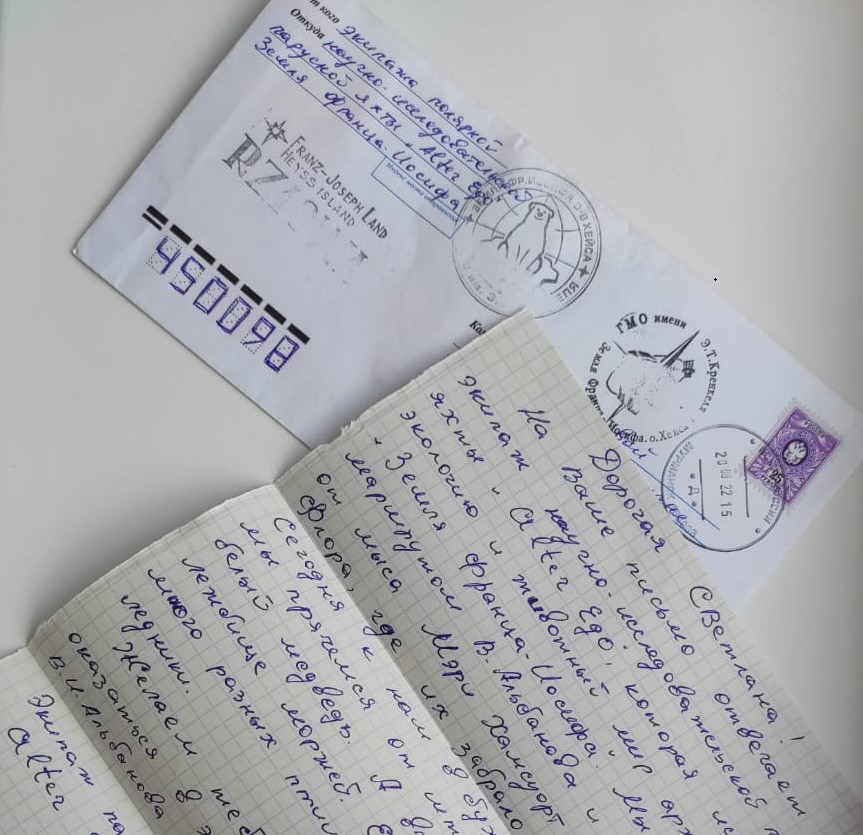 от кого экипажа полярной
Откуда научно-исследовательской
парусной яхты "Alter Ego"
Земля Франца-Иосифа
FRANZ-JOSEPH LAND
HEYSS ISLAND
450098
ЗЕМЛЯ ФР. ИОСИФА О-В ХЕЙСА
ГМО имени
Э.Т.Кренкеля
Земля Франца-Иосифа.о.Хейса
20 08 22 15
Дорогая Светлана!
На Ваше письмо отвечает
экипаж научно-исследовательской
яхты "Alter Ego", которая
экологию и животный мир
- Земля Франца-Иосифа. Мы
маршрутом В. Альбанова и
от мыса Мэри Хамсуорт
Флора, где их забрало
Сегодня к нам в
мы прячемся от
белый медведь. А
лежбище моржей.
много разных
ледник.
Желаем
оказаться в
В.И.Альбанова
Экипаж
Alter